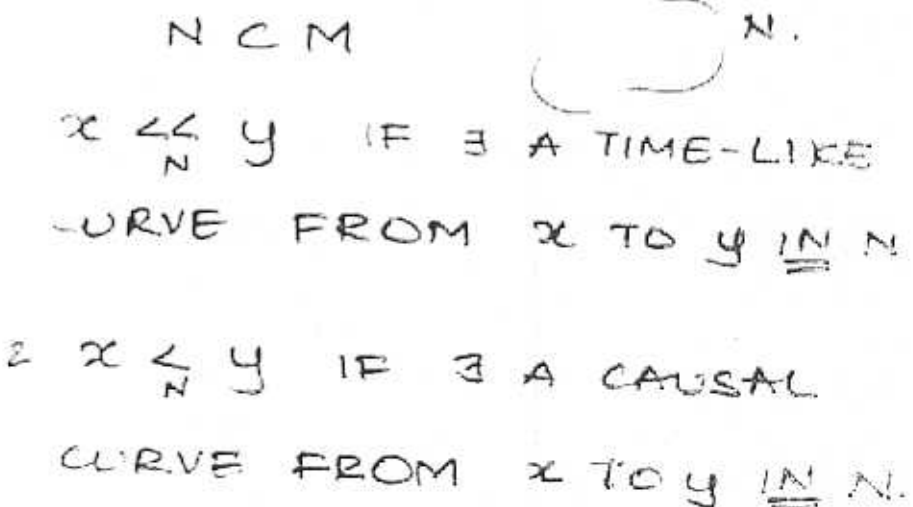 N ⊂ M N.
x <<_N y IF ∃ A TIME-LIKE
-URVE FROM x TO y IN N
2 x <_N y IF ∃ A CAUSAL
CURVE FROM x TO y IN N.